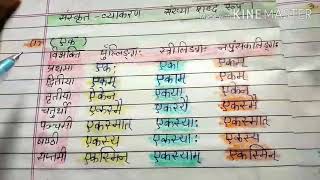 संस्कृत-व्याकरण संख्या शब्द रूप
KINEMASTER
(1) (एक)
विभक्ति पुँल्लिङ्गः स्त्रीलिङ्गः नपुंसकलिङ्गः
प्रथमा एकः एका एकम्
द्वितीया एकम् एकाम् एकम्
तृतीया एकेन एकया एकेन
चतुर्थी एकस्मै एकस्यै एकस्मै
पञ्चमी एकस्मात् एकस्याः एकस्मात्
षष्ठी एकस्य एकस्याः एकस्य
सप्तमी एकस्मिन् एकस्याम् एकस्मिन्